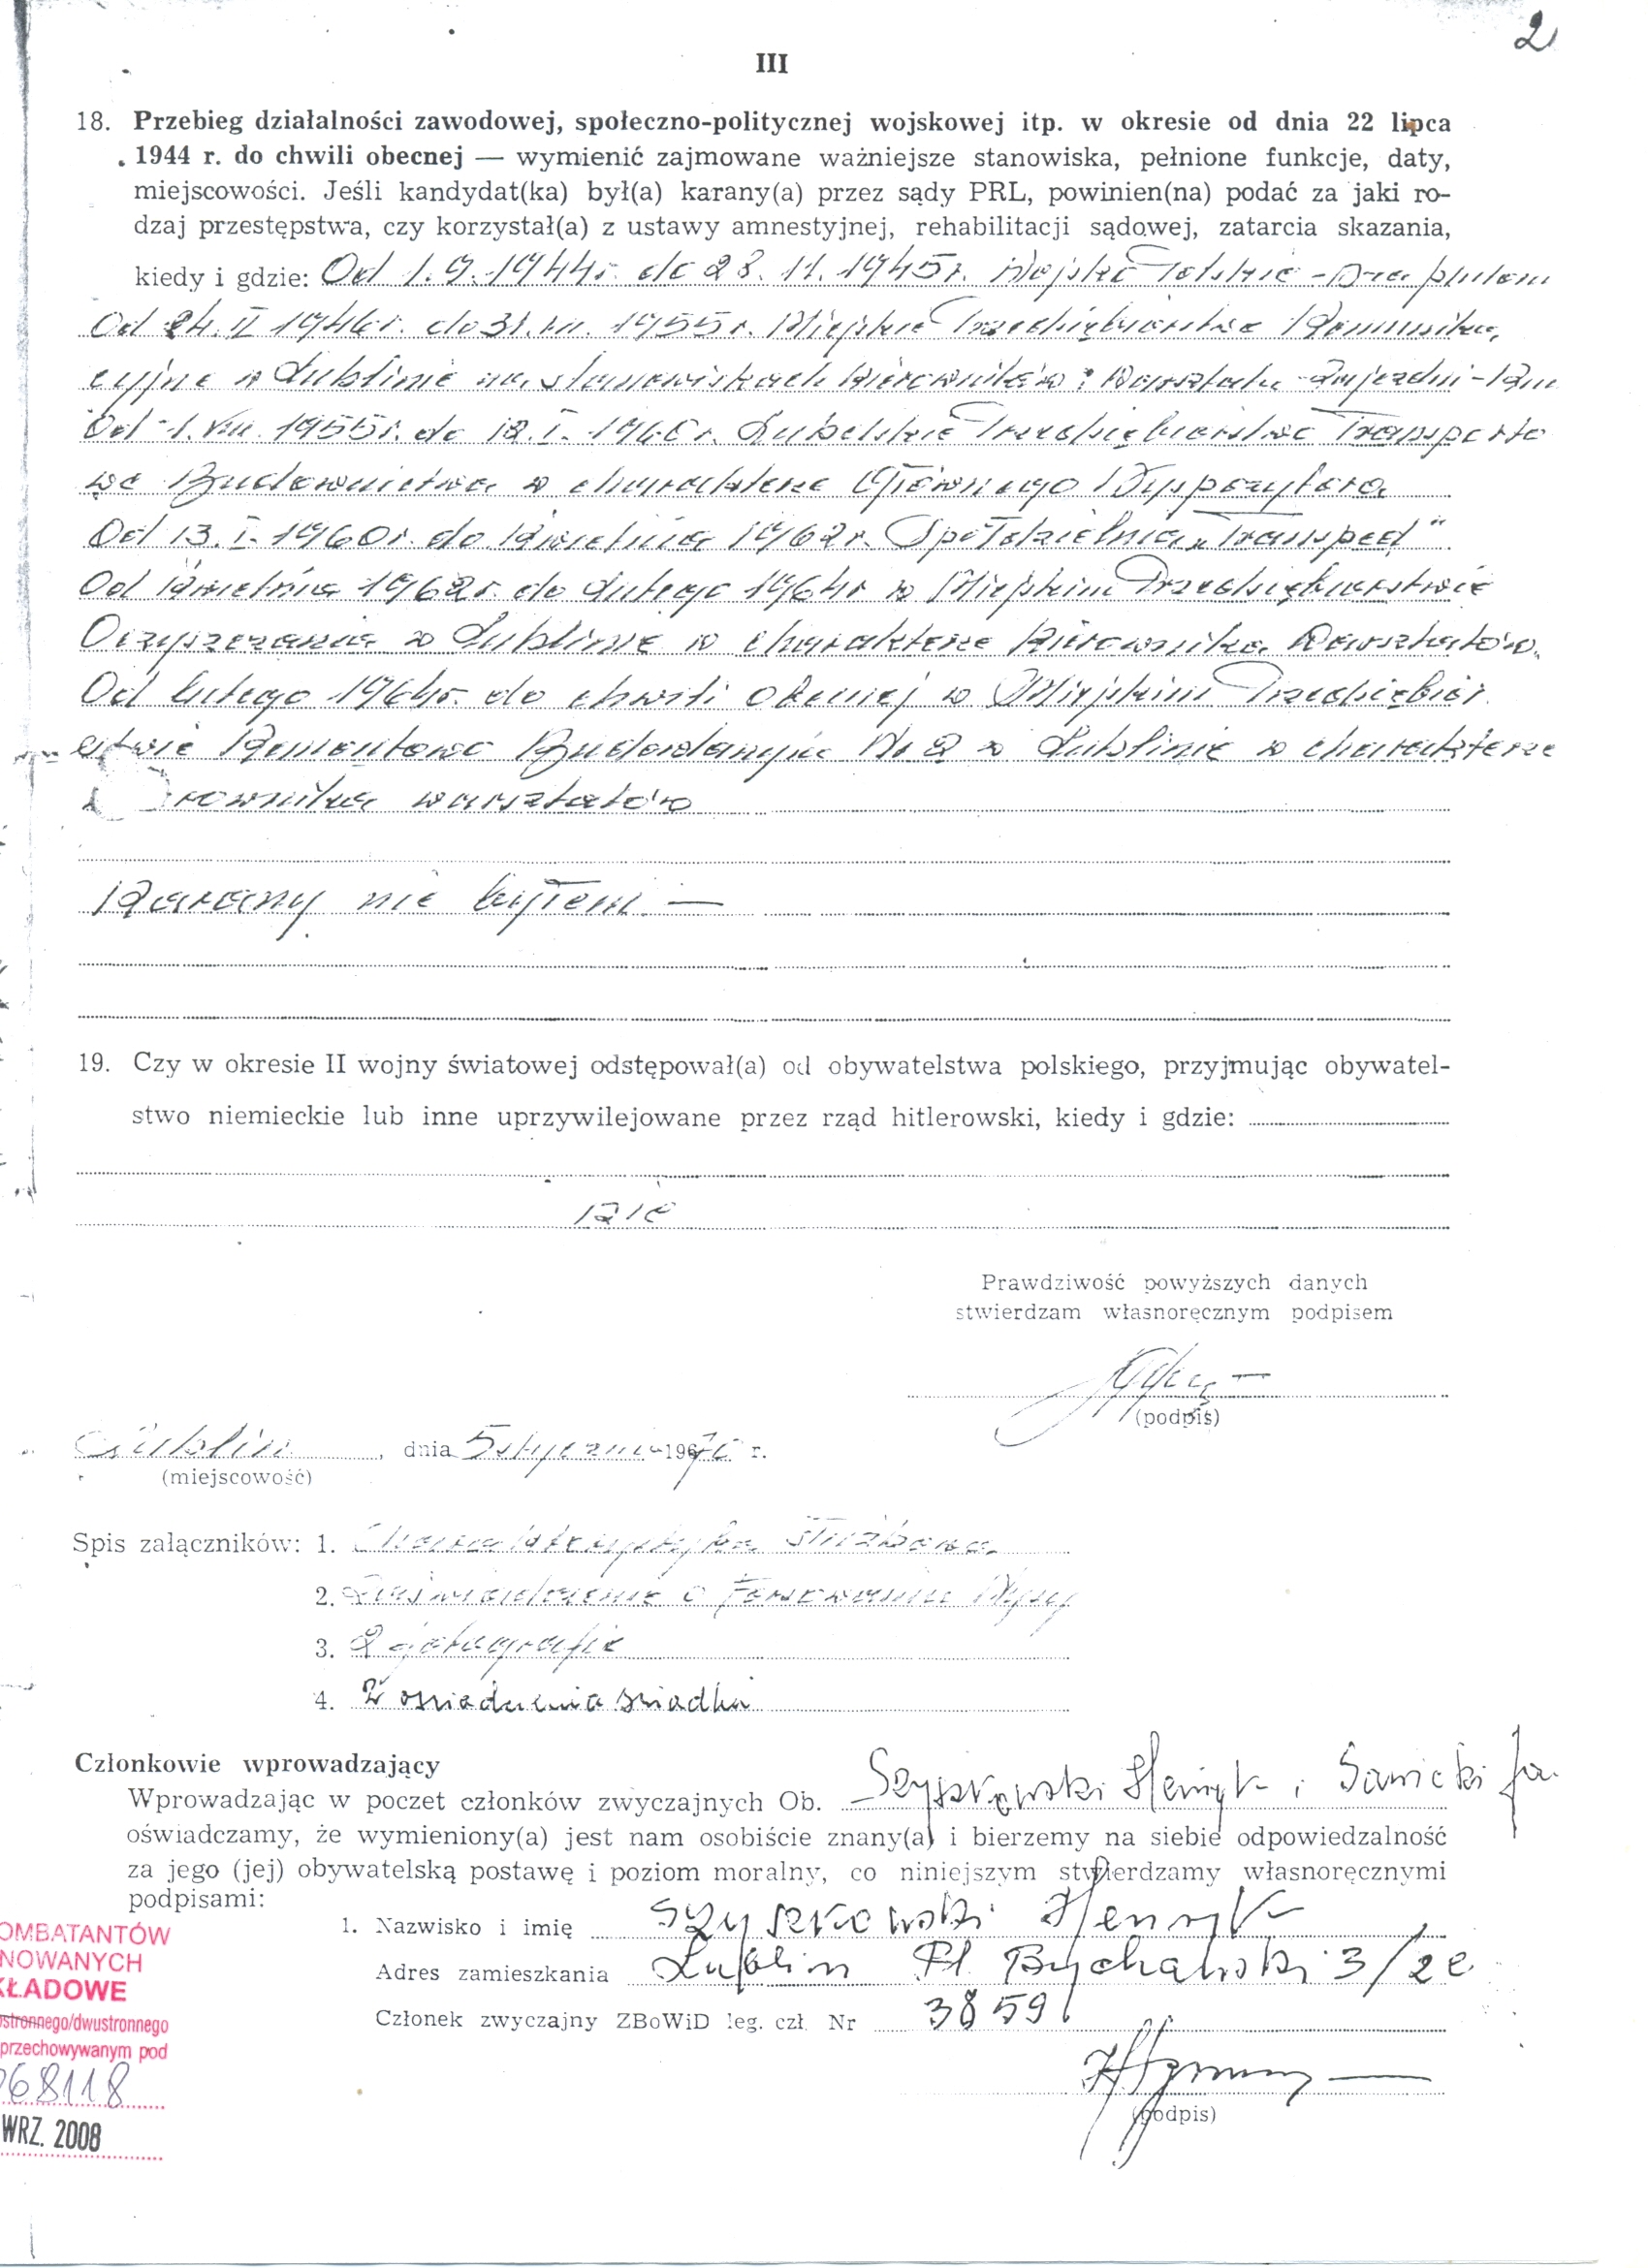 2
III
18. Przebieg działalności zawodowej, społeczno-politycznej wojskowej itp. w okresie od dnia 22 lipca
1944 r. do chwili obecnej — wymienić zajmowane ważniejsze stanowiska, pełnione funkcje, daty,
miejscowości. Jeśli kandydat(ka) był(a) karany(a) przez sądy PRL, powinien(na) podać za jaki ro-
dzaj przestępstwa, czy korzystał(a) z ustawy amnestyjnej, rehabilitacji sądowej, zatarcia skazania,
kiedy i gdzie: Od 1.9.1944r. do 28.11.1945r. Wojsko Polskie - plutonu
Od 24.II 1946r. do 31.VII.1955r. Miejskie Przedsiębiorstwo Komunika,
cyjne w Lublinie na stanowiskach kierowników: Warsztatu - Zajezdni -
Od 1.VIII.1955r. do 12.I.1960r. Lubelskie Przedsiębiorstwo Transporto
we Budownictwa w charakterze Głównego Dyspozytora
Od 13.I.1960r. do kwietnia 1962r. Spółdzielnia „Transped”.
Od kwietnia 1962r. do lutego 1964r w Miejskim Przedsiębiorstwie
Oczyszczania w Lublinie w charakterze kierownika Warsztatów.
Od lutego 1964r. do chwili obecnej w Miejskim Przedsiębior.
stwie Remontowo Budowlanym Nr 2 w Lublinie w charakterze
kierownika warsztatów
Karany nie byłem. —
19. Czy w okresie II wojny światowej odstępował(a) od obywatelstwa polskiego, przyjmując obywatel-
stwo niemieckie lub inne uprzywilejowane przez rząd hitlerowski, kiedy i gdzie:
Nie
Prawdziwość powyższych danych
stwierdzam własnoręcznym podpisem
(podpis)
Lublin, dnia 5 stycznia 1970 r.
(miejscowość)
Spis załączników: 1. Charakterystyka służbowa
2. Zaświadczenie o
3. 2 fotografie
4. 2 oświadczenia świadka
Członkowie wprowadzający
Wprowadzając w poczet członków zwyczajnych Ob. Szyszkowski Henryk i Sawicki Ja.
oświadczamy, że wymieniony(a) jest nam osobiście znany(a) i bierzemy na siebie odpowiedzalność
za jego (jej) obywatelską postawę i poziom moralny, co niniejszym stwierdzamy własnoręcznymi
podpisami:
1. Nazwisko i imię Szyszkowski Henryk
Adres zamieszkania Lublin Pl. Bychawski 3/22
Członek zwyczajny ZBoWiD leg. czł. Nr 38591
(podpis)
OMBATANTÓW
NOWANYCH
KŁADOWE
stronnego/dwustronnego
przechowywanym pod
68118
WRZ. 2008